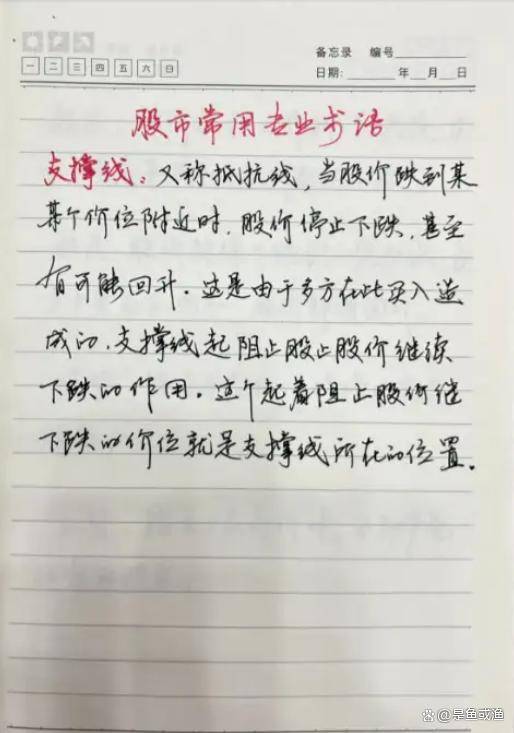 备忘录 编号
一 二 三 四 五 六 日
日期: 年 月 日
股市常用专业术语
支撑线：又称抵抗线，当股价跌到某
某个价位附近时，股价停止下跌，甚至
有可能回升。这是由于多方在此买入造
成的，支撑线起阻止股止股价继续
下跌的作用。这个起着阻止股价继
下跌的价位就是支撑线所在的位置。
@是鱼或渔